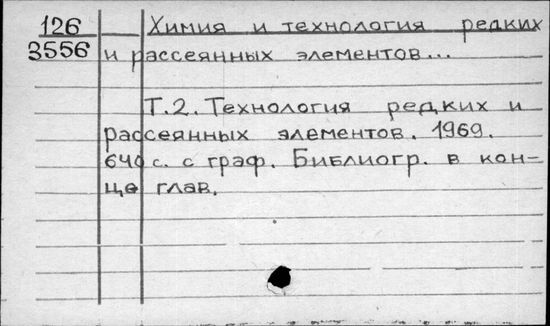 126 Химия и технология редких
3556 и рассеянных элементов...
Т.2. Технология редких и
рассеянных элементов. 1969.
640 с. с граф. Библиогр. в кон-
це глав.